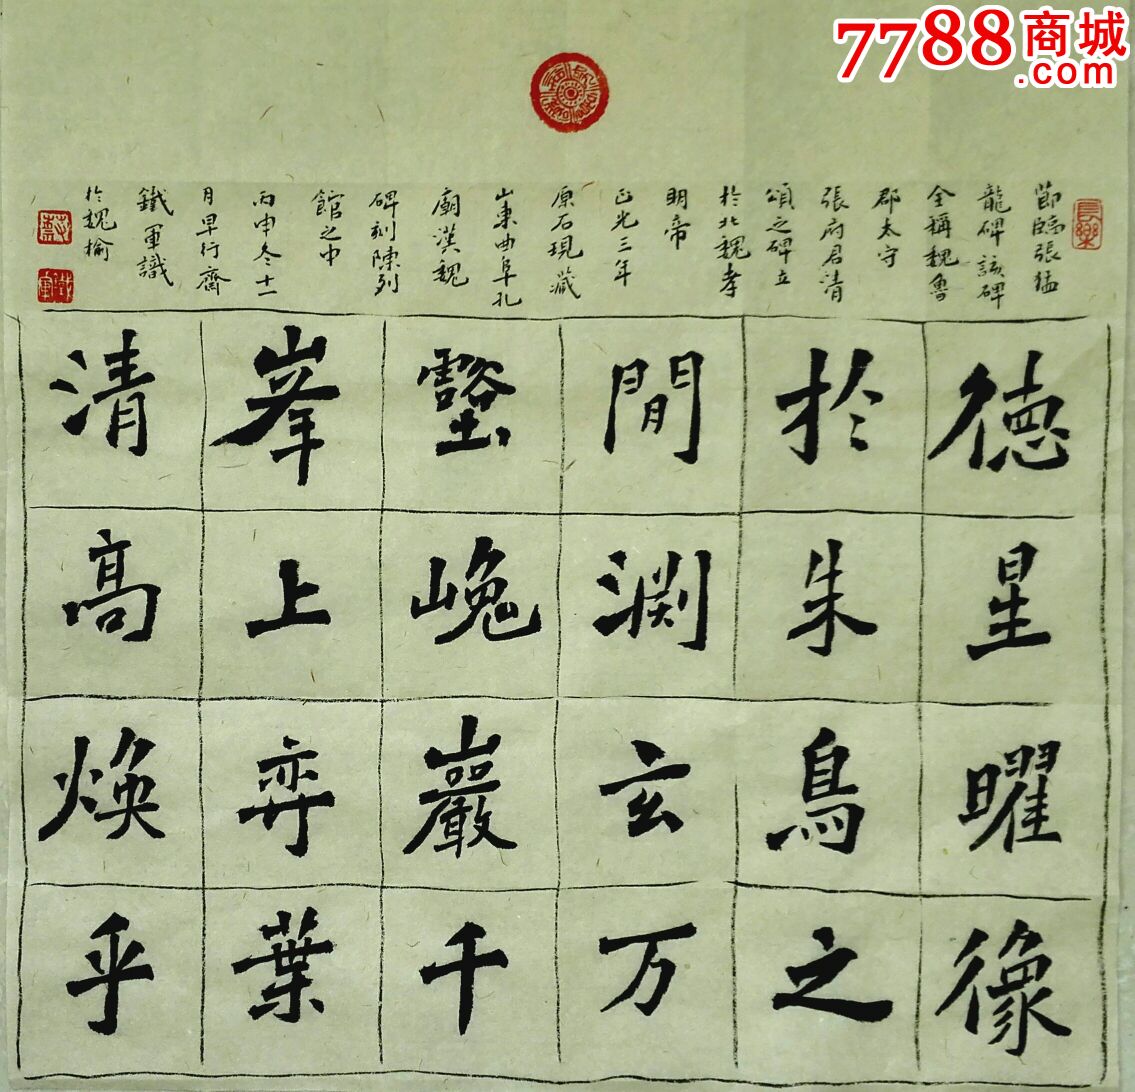 7788商城
.com
長樂
節臨張猛
龍碑該碑
全稱魏魯
郡太守
張府君清
頌之碑立
於北魏孝
明帝
正光三年
原石現藏
山東曲阜孔
廟漢魏
碑刻陳列
館之中
丙申冬十一
月早行齋
鐵軍識
於魏榆
德星曜像
於朱鳥之
間渊玄万
壑嵬巖千
峯上弈葉
清高焕乎